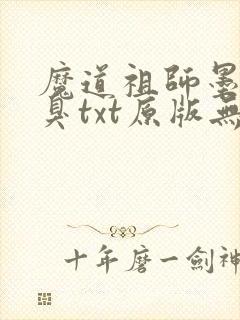 魔道祖師墨
臭txt原版無
十年磨一劍神